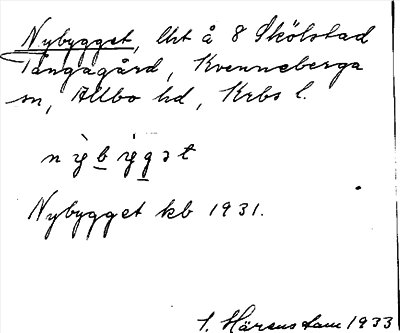 Nybygget, lht å 8 Skölstad
Tångagård, Kvenneberga
sn, Allbo hd, Krbs l.
nỳbẏgət
Nybygget kb 1931.
1933